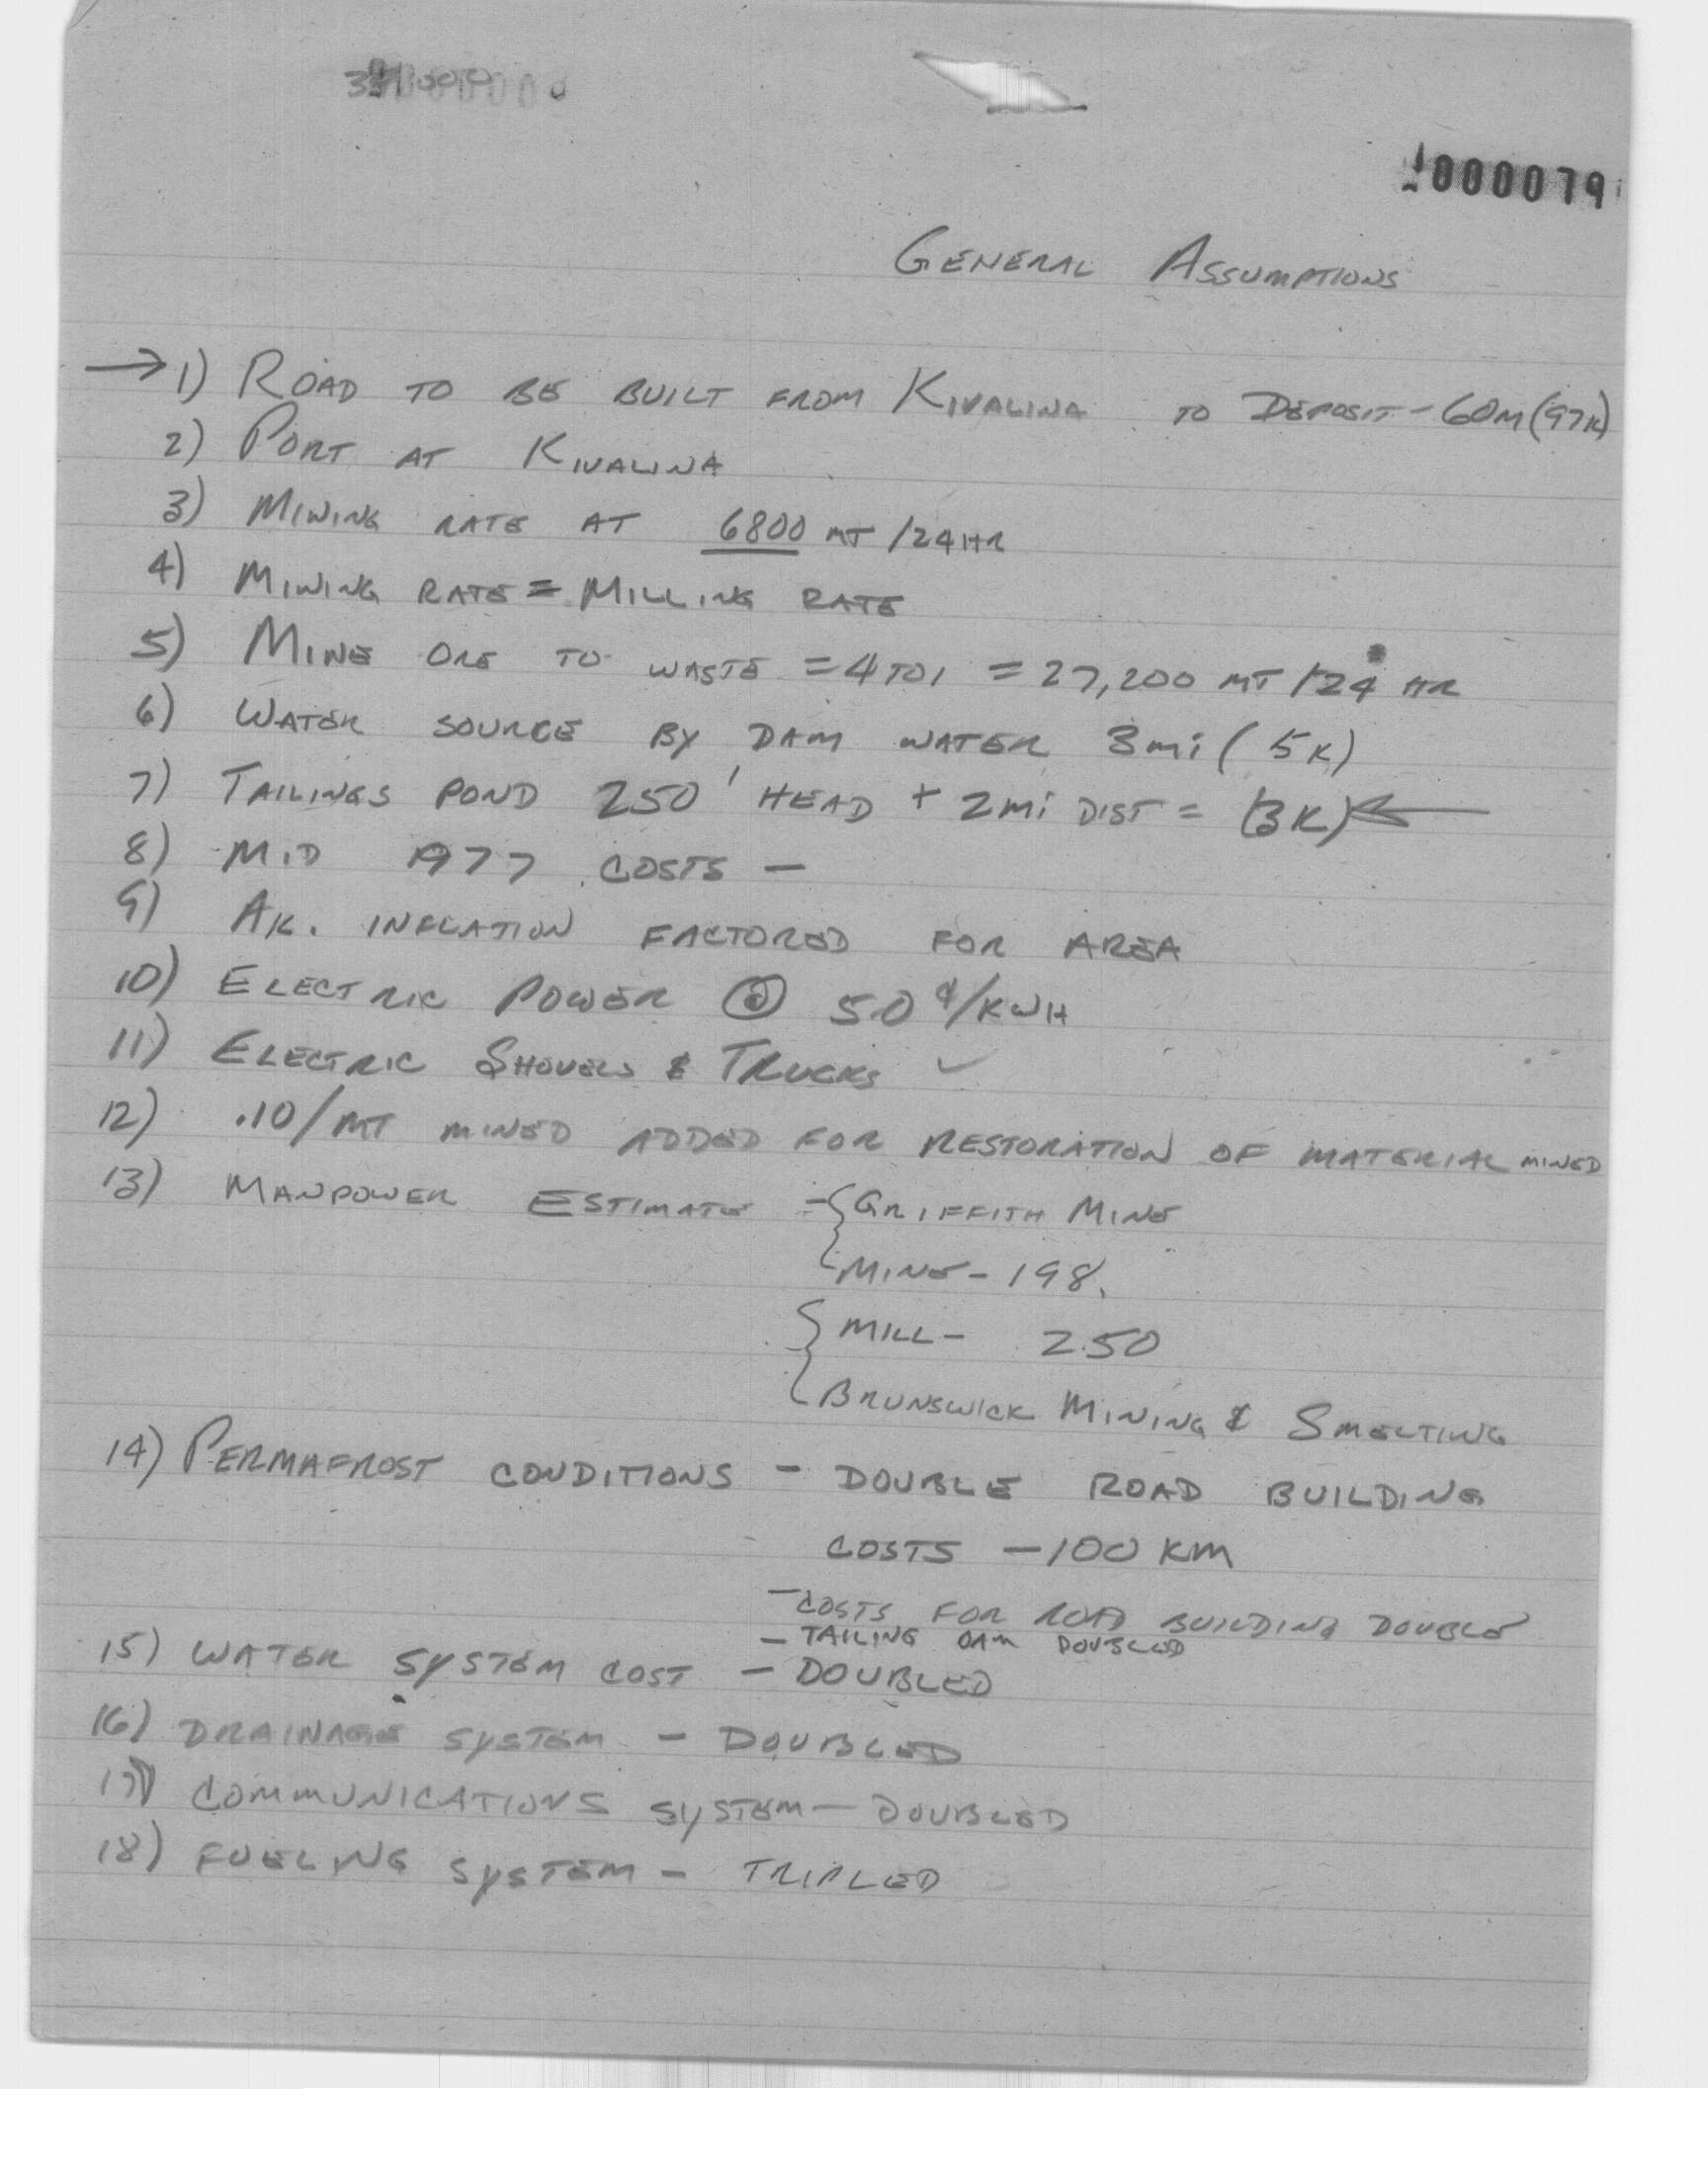 000079
GENERAL ASSUMPTIONS
→ 1) ROAD TO BE BUILT FROM KIVALINA TO DEPOSIT - 60M (97K)
2) PORT AT KIVALINA
3) MINING RATE AT 6800 MT /24HR
4) MINING RATE = MILLING RATE
5) MINE ORE TO WASTE = 4 TO 1 = 27,200 MT /24 HR
6) WATER SOURCE BY DAM WATER 3mi ( 5K)
7) TAILINGS POND 250' HEAD + 2mi DIST = (3K) ←
8) MID 1977 COSTS -
9) AK. INFLATION FACTORED FOR AREA
10) ELECTRIC POWER @ 5.0 ¢/KWH
11) ELECTRIC SHOVELS & TRUCKS ✓
12) .10/MT MINED ADDED FOR RESTORATION OF MATERIAL MINED
13) MANPOWER ESTIMATE - { GRIFFITH MINE
MINE - 198.
{ MILL - 250
BRUNSWICK MINING & SMELTING
14) PERMAFROST CONDITIONS - DOUBLE ROAD BUILDING
COSTS - 100 KM
- COSTS FOR ROAD BUILDING DOUBLE
- TAILING DAM DOUBLED
15) WATER SYSTEM COST - DOUBLED
16) DRAINAGE SYSTEM - DOUBLED
17) COMMUNICATIONS SYSTEM - DOUBLED
18) FUELING SYSTEM - TRIPLED